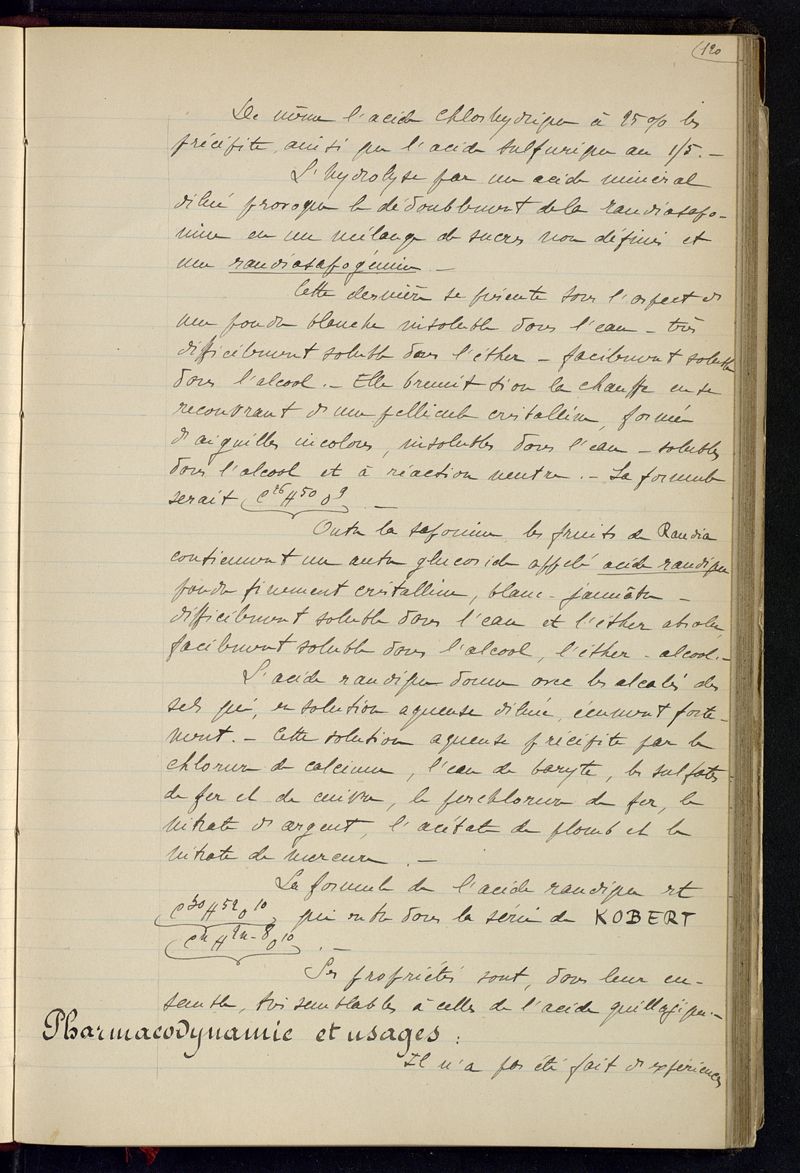 120
De même l'acide chlorhydrique à 25% les
précipite, ainsi que l'acide sulfurique au 1/5. –
L'hydrolyse par un acide minéral
dilué provoque le dédoublement de la randiasapo-
nine en un mélange de sucres non définis et
une randiasapogénine. –
Cette dernière se présente sous l'aspect d'
une poudre blanche insoluble dans l'eau – très
difficilement soluble dans l'éther – facilement soluble
dans l'alcool. – Elle brunit si on la chauffe en se
recouvrant d'une pellicule cristalline, formée
d'aiguilles incolores, insolubles dans l'eau – solubles
dans l'alcool et à réaction neutre. – Sa formule
serait C²⁶H⁵⁰O⁹. –
Outre la saponine, les fruits de Randia
contiennent un autre glucoside appelé acide randique
poudre finement cristalline, blanc-jaunâtre –
difficilement soluble dans l'eau et l'éther absolu,
facilement soluble dans l'alcool, l'éther-alcool. –
L'acide randique donne avec les alcalis des
sels qui, en solution aqueuse diluée, écument forte-
ment. – Cette solution aqueuse précipite par le
chlorure de calcium, l'eau de baryte, les sulfates
de fer et de cuivre, le perchlorure de fer, le
nitrate d'argent, l'acétate de plomb et le
nitrate de mercure. –
La formule de l'acide randique est
C³⁰H⁵²O¹⁰ qui entre dans la série de KOBERT
CⁿH²ⁿ⁻⁸O¹⁰. –
Ses propriétés sont, dans leur en-
semble, très semblables à celles de l'acide quillajique. –
Pharmacodynamie et usages :
Il n'a pas été fait d'expériences